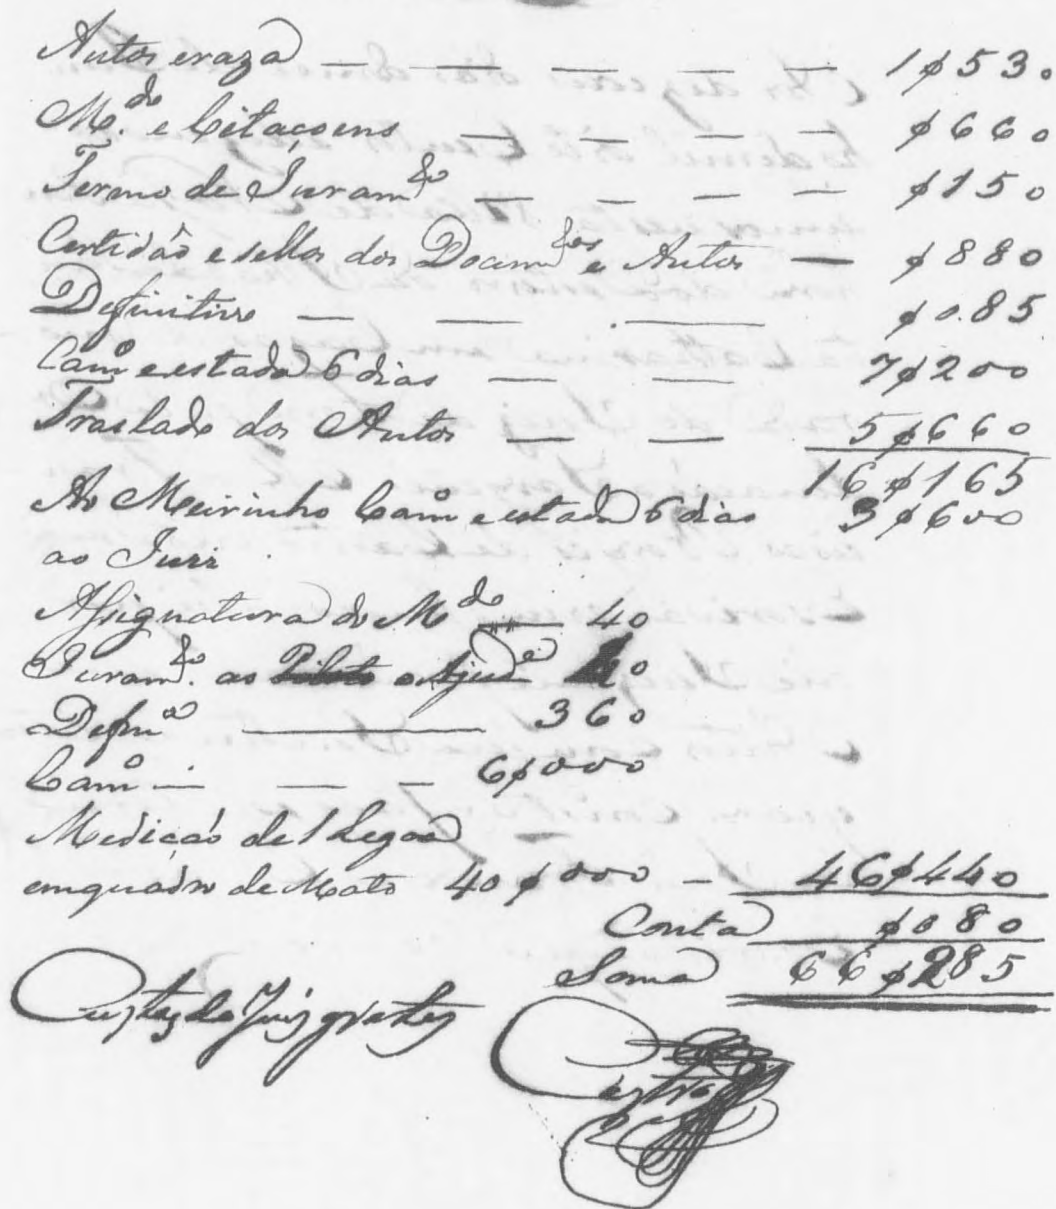 Autos e raza — — — — — 1$530
M.do e Citaçoens — — — — $660
Termo de Juram.to — — — — $150
Certidão e sellos dos Docum.tos e Autos — $880
Definitivo — — — $085
Cam.o e estada 6 dias — — 7$200
Traslado dos Autos — — 5$660
16$165
Ao Meirinho Cam.o e estada 6 dias 3$600
ao Juri
Assignatura do M.do — 40
Juram.to ao Piloto e Ajud.e 40
Defin.o — 360
Cam.o — — — 6$000
Medição de 1 Legoa
em quadro de Mato 40$000 — 46$440
Conta $080
Soma 66$285
Custas do Juiz gratis
Castro